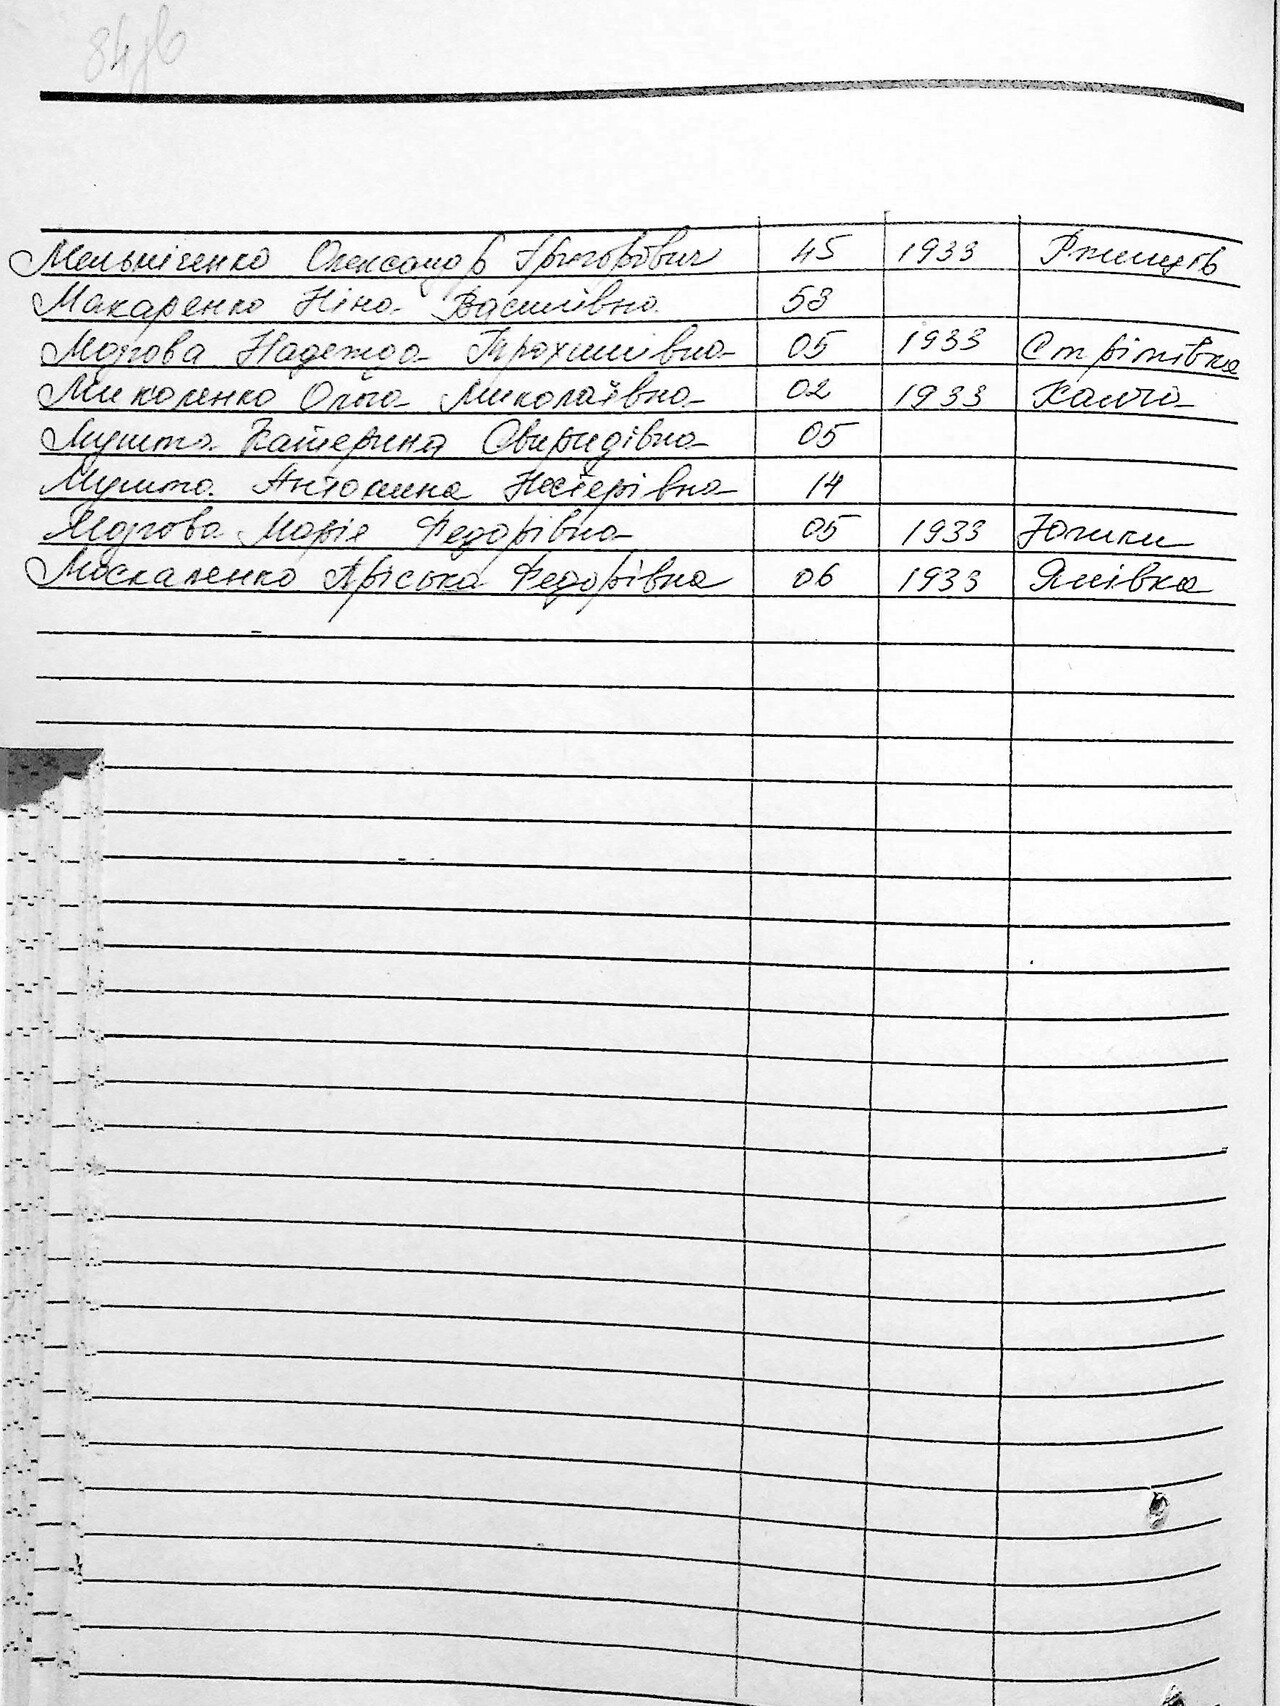 84зв
Мельніченко Олександр Григорович 45 1933 Ржищів
Макаренко Ніна Василівна 53
Морова Надежда Трохимівна 05 1933 Стрітівка
Миколенко Ольга Миколаївна 02 1933
Мушта Катерина Свиридівна 05
Мушта Антонина Нестерівна 14
Морова Марія Федорівна 05 1933 Юшки
Москаленко Пріська Федорівна 06 1933 Янівка